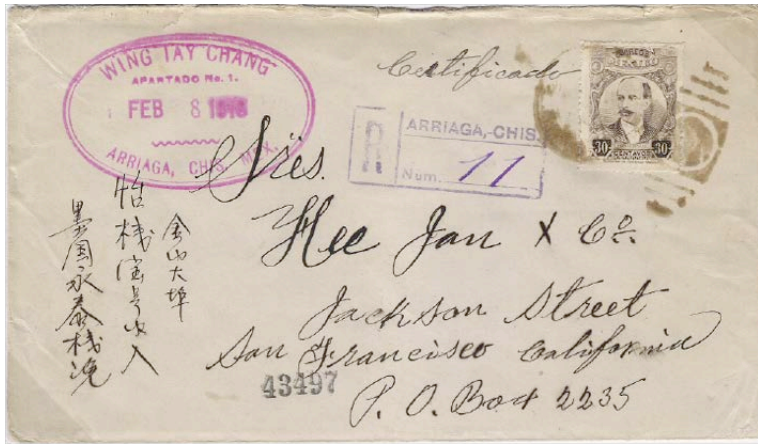 WING TAY CHANG
APARTADO No. 1.
FEB 8 1918
ARRIAGA, CHIS. MEX.
Certificado
30 30
R
ARRIAGA,-CHIS.
Num. 11
Sres.
Hee Jan & Co.
Jackson Street
San Francisco California
P. O. Box 2235
43497
金山大埠
怡棧宝号收入
墨国永泰棧